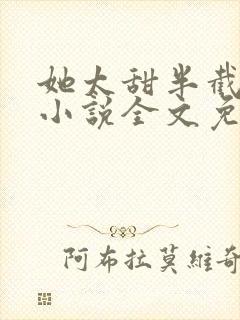 她太甜半截
小說全文免
阿布拉莫維奇